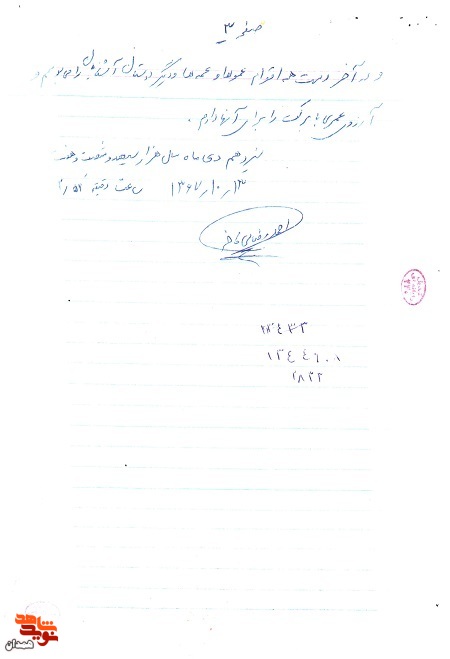 صفحه ۳
و در آخر دست همه اقوام عموها و عمه ها و دیگر دوستان و آشنایان را می بوسم و
آرزوی عمری با برکت را برای آنها دارم .
سیزدهم دی ماه سال هزار و سیصد و شصت و هفت
۱۳ر۱۰ر۱۳۶۷ ساعت دقیقه
احمد رضایی
۱۳۴۴۶۰۸
۲۸۳۲
نوید شاهد
همدان